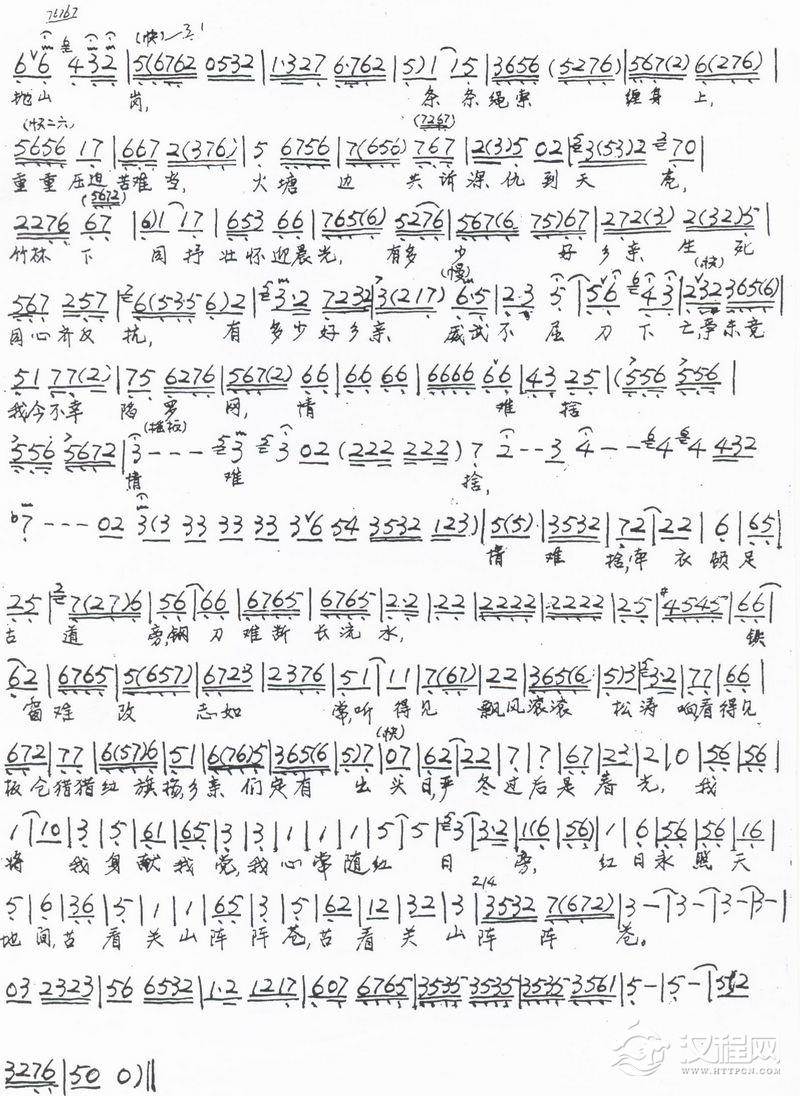 7 2 7 6 7
(快)
6 6 4 3 2 | 5(6762 0532 | 1·327 6·762 | 5) 1 1 5 | 3656 (5276) | 567(2) 6(276) |
地山 岗, 条 条 绳索 缠身 上,
(快二六) (7267)
5656 17 | 667 2(376) | 5 6756 | 7(656) 767 | 2(3)5 02 | 3(53)2 70 |
重 重 压迫 苦难 当, 火 塘 边 共 诉 深 仇 到 天 亮,
(5672)
2276 67 | 6) 1 17 | 653 66 | 765(6) 5276 | 567(6 75)67 | 272(3) 2(32)5 |
竹林 下 同 抒 壮怀 迎 晨 光, 有 多 少 好 乡 亲 生 死
(慢) (快)
567 257 | 6(535 6)2 | 3·2 7232 | 3(217) 6·5 | 2·3 5 | 5 6 4 3 | 232 365(6) |
同心 齐反 抗, 有 多 少 好 乡 亲 威武 不 屈 刀 下 亡,
51 77(2) | 75 6276 | 567(2) 66 | 66 66 | 6666 66 | 43 25 | (556 556 |
我今不幸 陷 罗 网, 情 难 捨
(摇板)
556 5672 | 3 - - - 3 3 02 (222 222 222) 7 2 - - 3 4 - - 4 4 432
情 难 捨,
7 - - - 02 3(3 33 33 33 33 36 54 3532 123) | 5(5) | 3532 | 72 | 22 | 6 | 65 |
情 难 捨, 牵 衣 顿 足
25 | 7(27)6 | 56 | 66 | 6765 | 6765 | 2·2 | 22 | 2222 | 2222 | 25 | #4545 | 66 |
古 道 旁, 钢 刀 难 断 长 流 水, 铁
62 | 6765 | 5(657) | 6723 | 2376 | 51 | 11 | 7(67) | 22 | 365(6 | 5)3 | 3·2 | 77 | 66 |
窗 难 改 志 如 常, 听 得 见 飘风 滚滚 松 涛 响 看 得 见
(快)
672 | 77 | 6(57)6 | 51 | 6(76)5 | 365(6 | 5)7 | 07 | 62 | 22 | 7 | 7 | 67 | 23 | 2 | 0 | 56 | 56 |
板仓 猎猎 红 旗 扬, 乡亲 们 定 有 出 头 日, 严 冬 过 后 是 春 光, 我
1 10 | 3 | 5 | 61 | 65 | 3 | 3 | 1 | 1 | 1 | 5 | 5 | 3 | 3·2 | 116 | 56) | 1 | 6 | 56 | 56 | 16 |
将 我 身 献 我 党, 我 心 常 随 红 日 旁, 红 日 永 照 天
2/4
5 | 6 | 36 | 5 | 1 | 1 | 65 | 3 | 5 | 62 | 12 | 32 | 3 | 3532 7(672) | 3 - | 3 - | 3 - | 3 - |
地 间, 苦 看 关 山 阵 阵 苍, 苦 看 关 山 阵 阵 苍。
03 2323 | 56 6532 | 1·2 1217 | 607 6765 | 3535 3535 | 3535 3561 | 5 - | 5 - | 5 12
3276 | 50 0) ||
汉程网
WWW.HTTPCN.COM